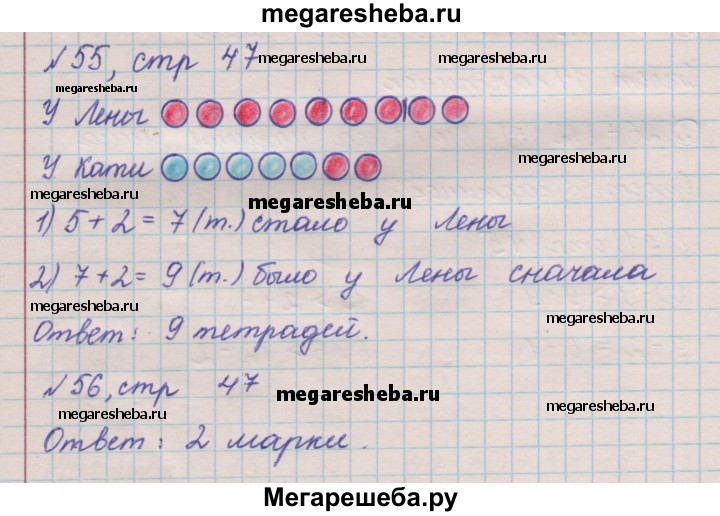 megaresheba.ru
№55, стр 47 megaresheba.ru megaresheba.ru
megaresheba.ru
У Лены
У Кати megaresheba.ru
megaresheba.ru megaresheba.ru
1) 5+2=7(т.) стало у Лены
2) 7+2=9(т.) было у Лены сначала
megaresheba.ru megaresheba.ru
Ответ: 9 тетрадей.
№56, стр 47 megaresheba.ru
megaresheba.ru megaresheba.ru
Ответ: 2 марки.
Мегарешеба.ру